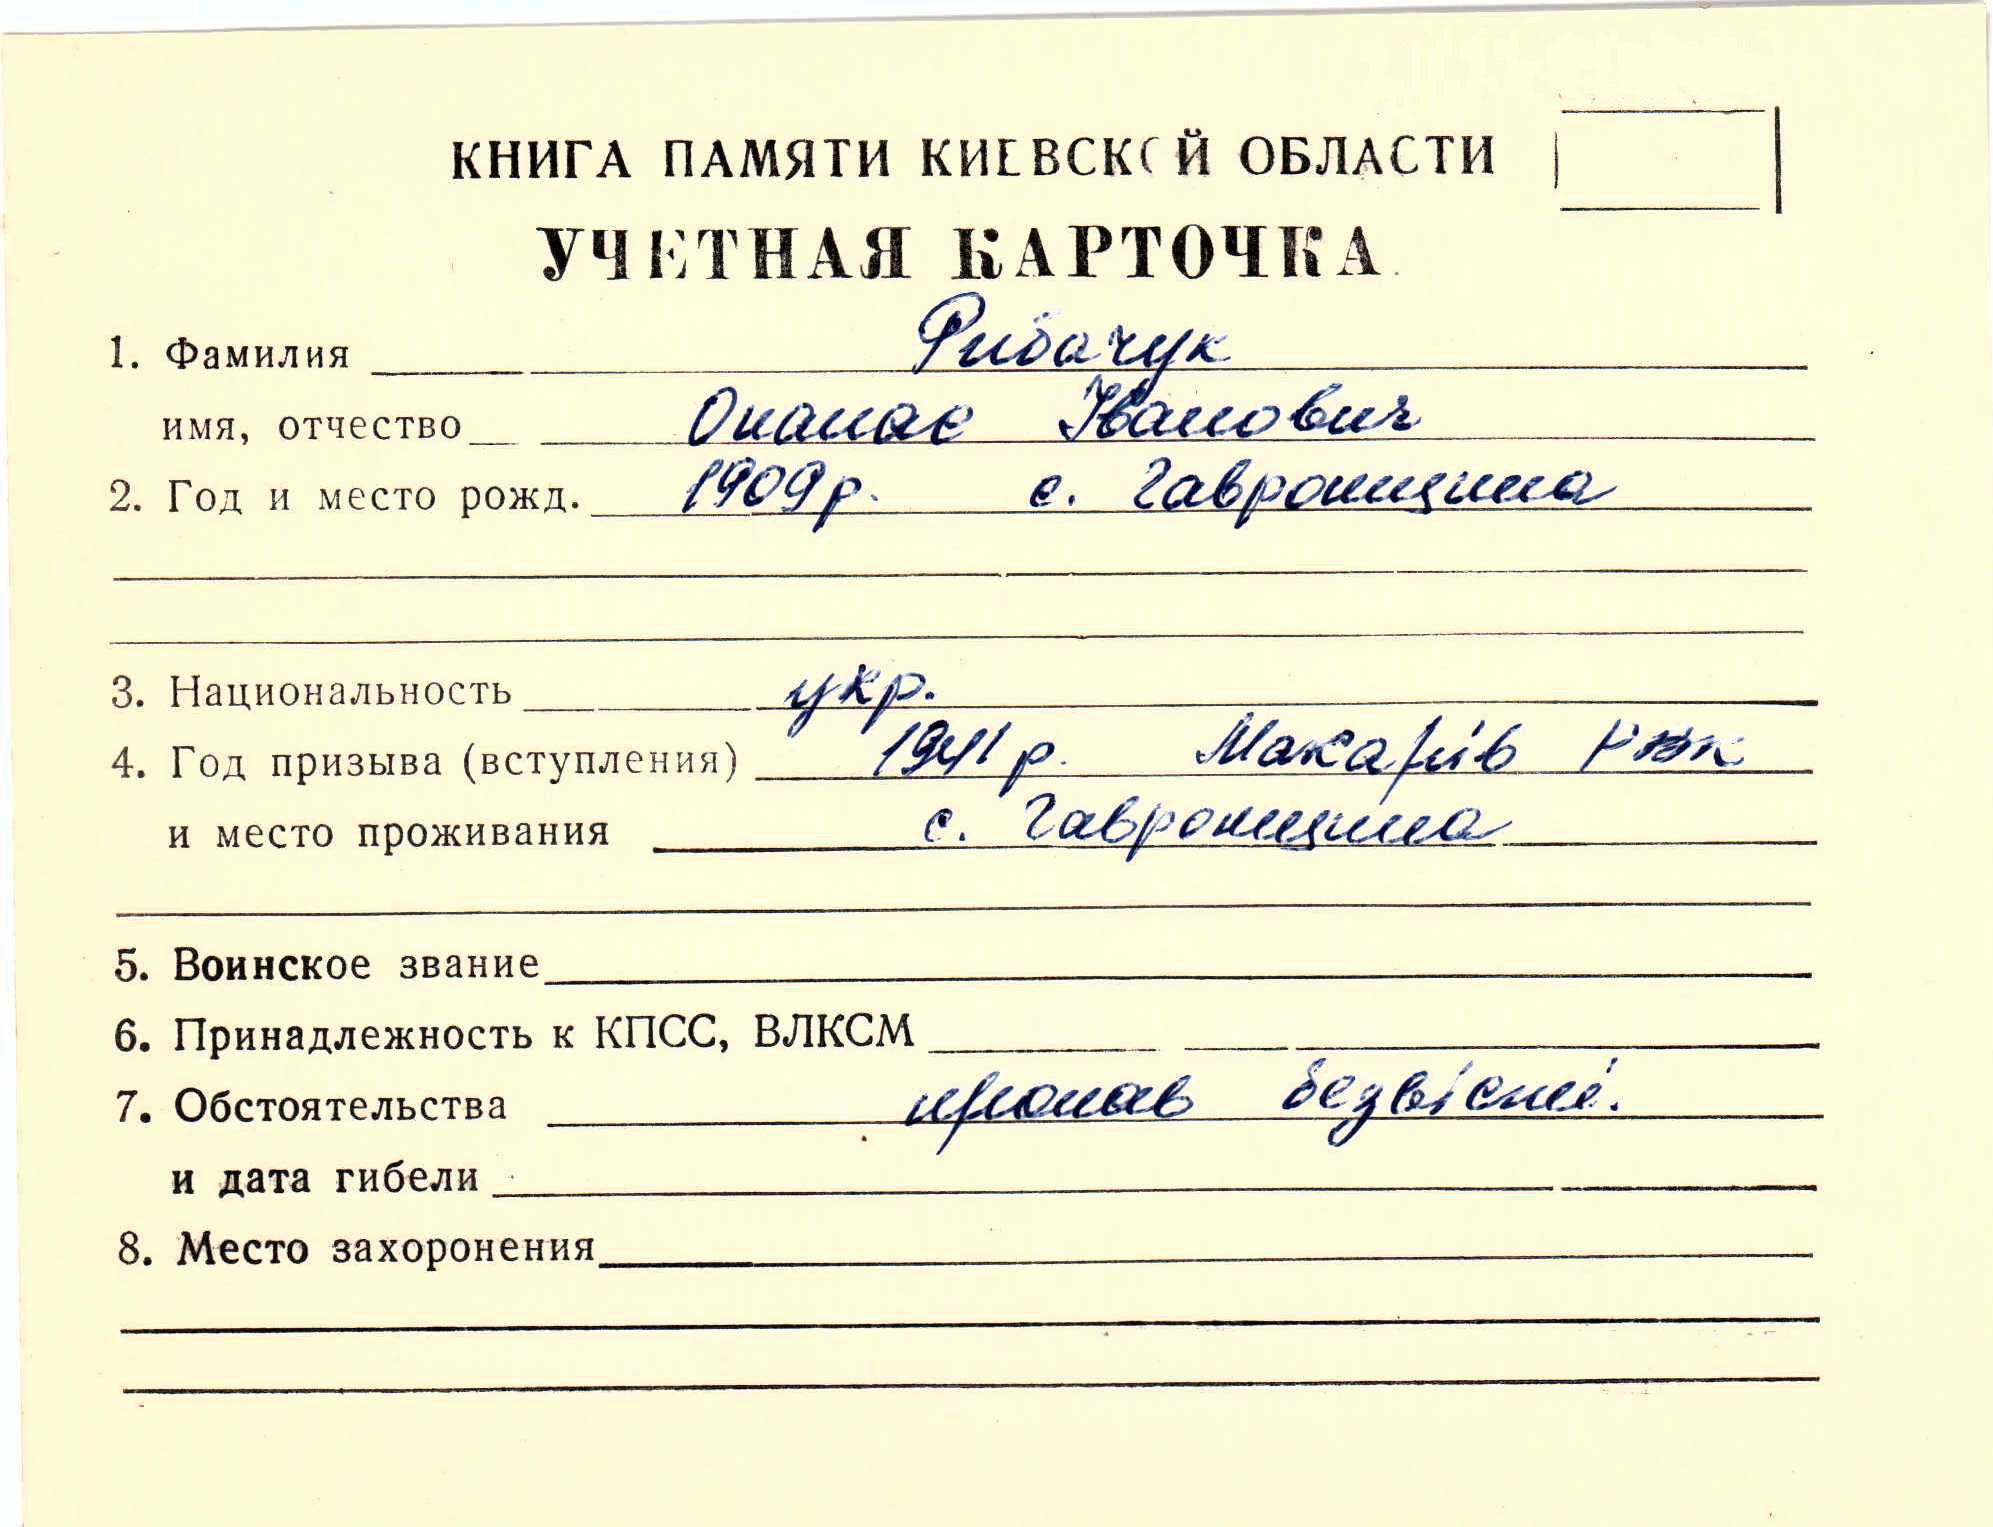 КНИГА ПАМЯТИ КИЕВСКОЙ ОБЛАСТИ
УЧЕТНАЯ КАРТОЧКА
1. Фамилия Рибачук
имя, отчество Опанас Іванович
2. Год и место рожд. 1909 р. с. Гавронщина
3. Национальность укр.
4. Год призыва (вступления) 1941 р. Макарів РВК
и место проживания с. Гавронщина
5. Воинское звание
6. Принадлежность к КПСС, ВЛКСМ
7. Обстоятельства пропав безвісті.
и дата гибели
8. Место захоронения